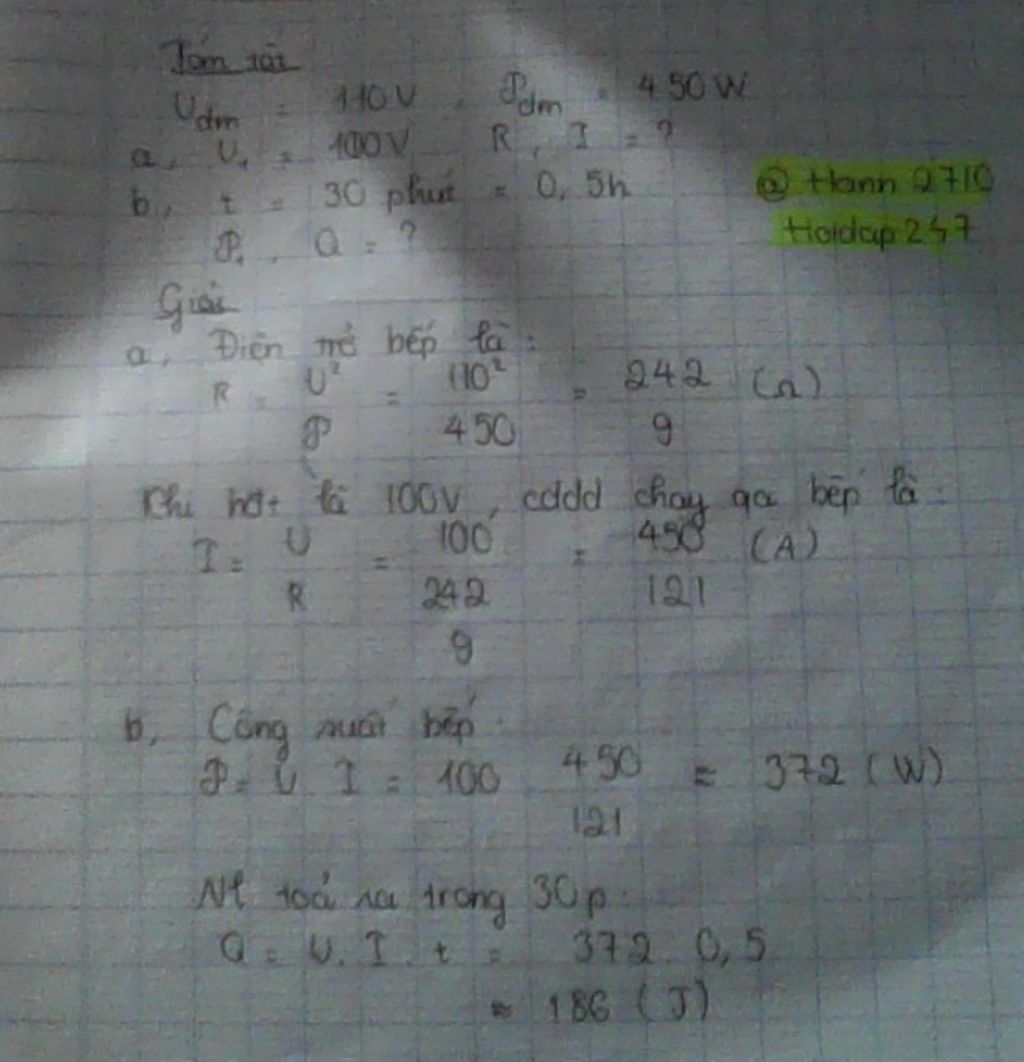 Tóm tắt
Uđm = 110V, Pđm = 450W
a, U₁ = 100V R, I = ?
b, t = 30 phút = 0,5h
@ Hann 2710
P₁, Q = ?
Hoidap 247
Giải
a, Điện trở bếp là:
R = U² = 110² = 242 (Ω)
P 450 9
Khi hđt là 100V, cđdđ chạy qa bếp là:
I = U = 100 = 450 (A)
R 242 121
9
b, Công suất bếp:
P = U I = 100 450 ≈ 372 (W)
121
Nl toả ra trong 30p:
Q = U. I. t = 372. 0,5
≈ 186 (J)